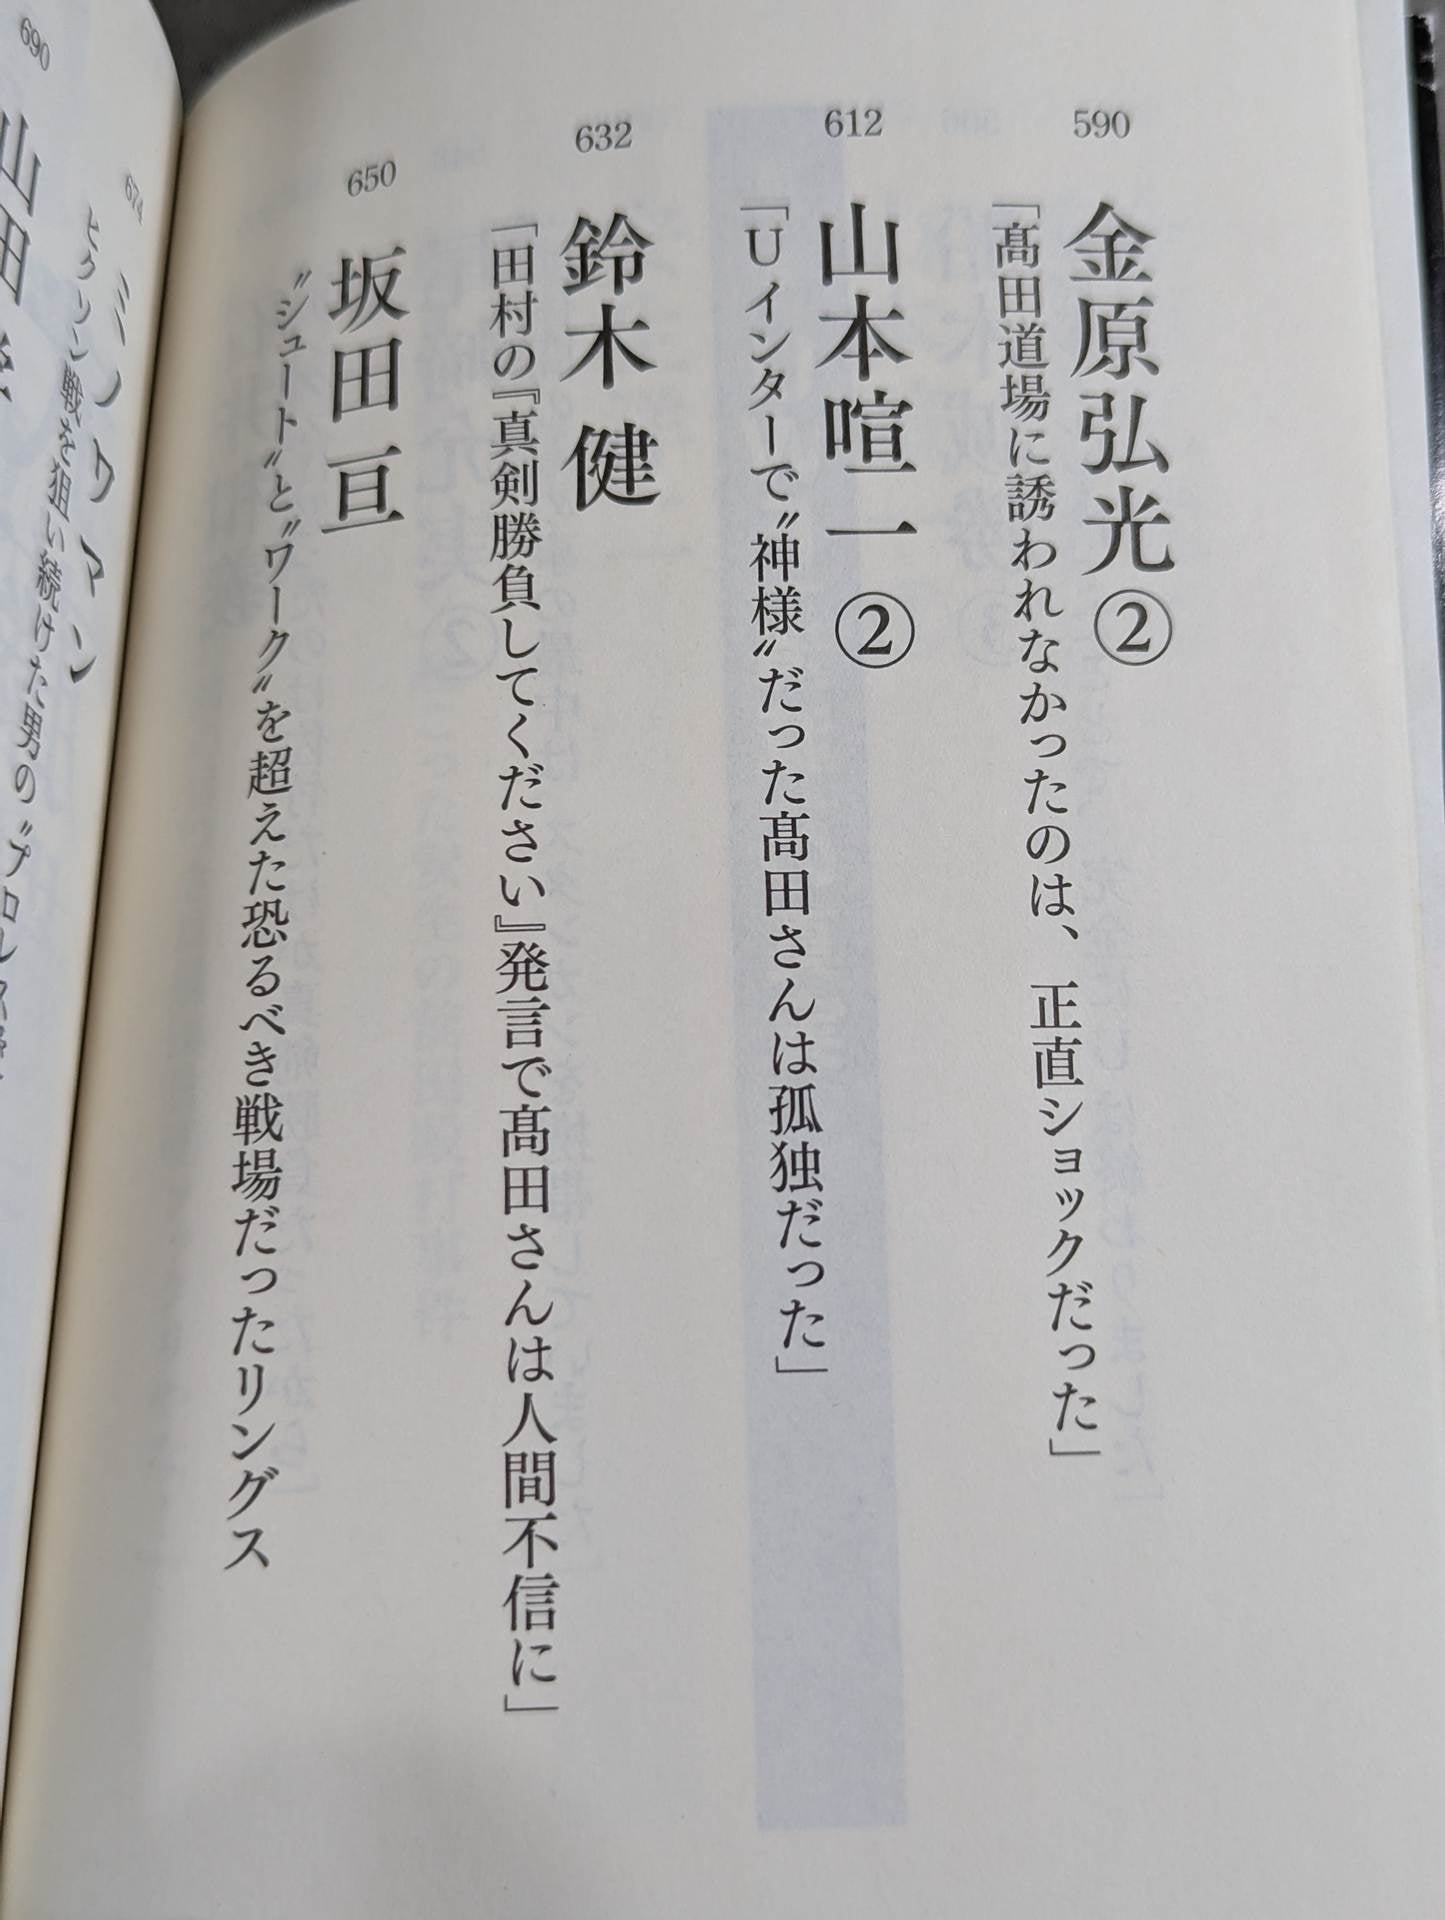 590
金原弘光②
「髙田道場に誘われなかったのは、正直ショックだった」
612
山本喧一②
「Uインターで〝神様〟だった髙田さんは孤独だった」
632
鈴木 健
「田村の『真剣勝負してください』発言で髙田さんは人間不信に」
650
坂田 亘
〝シュート〟と〝ワーク〟を超えた恐るべき戦場だったリングス
674
ミノワマン
ヒクソン戦を狙い続けた男の〝プロレス
690
山田